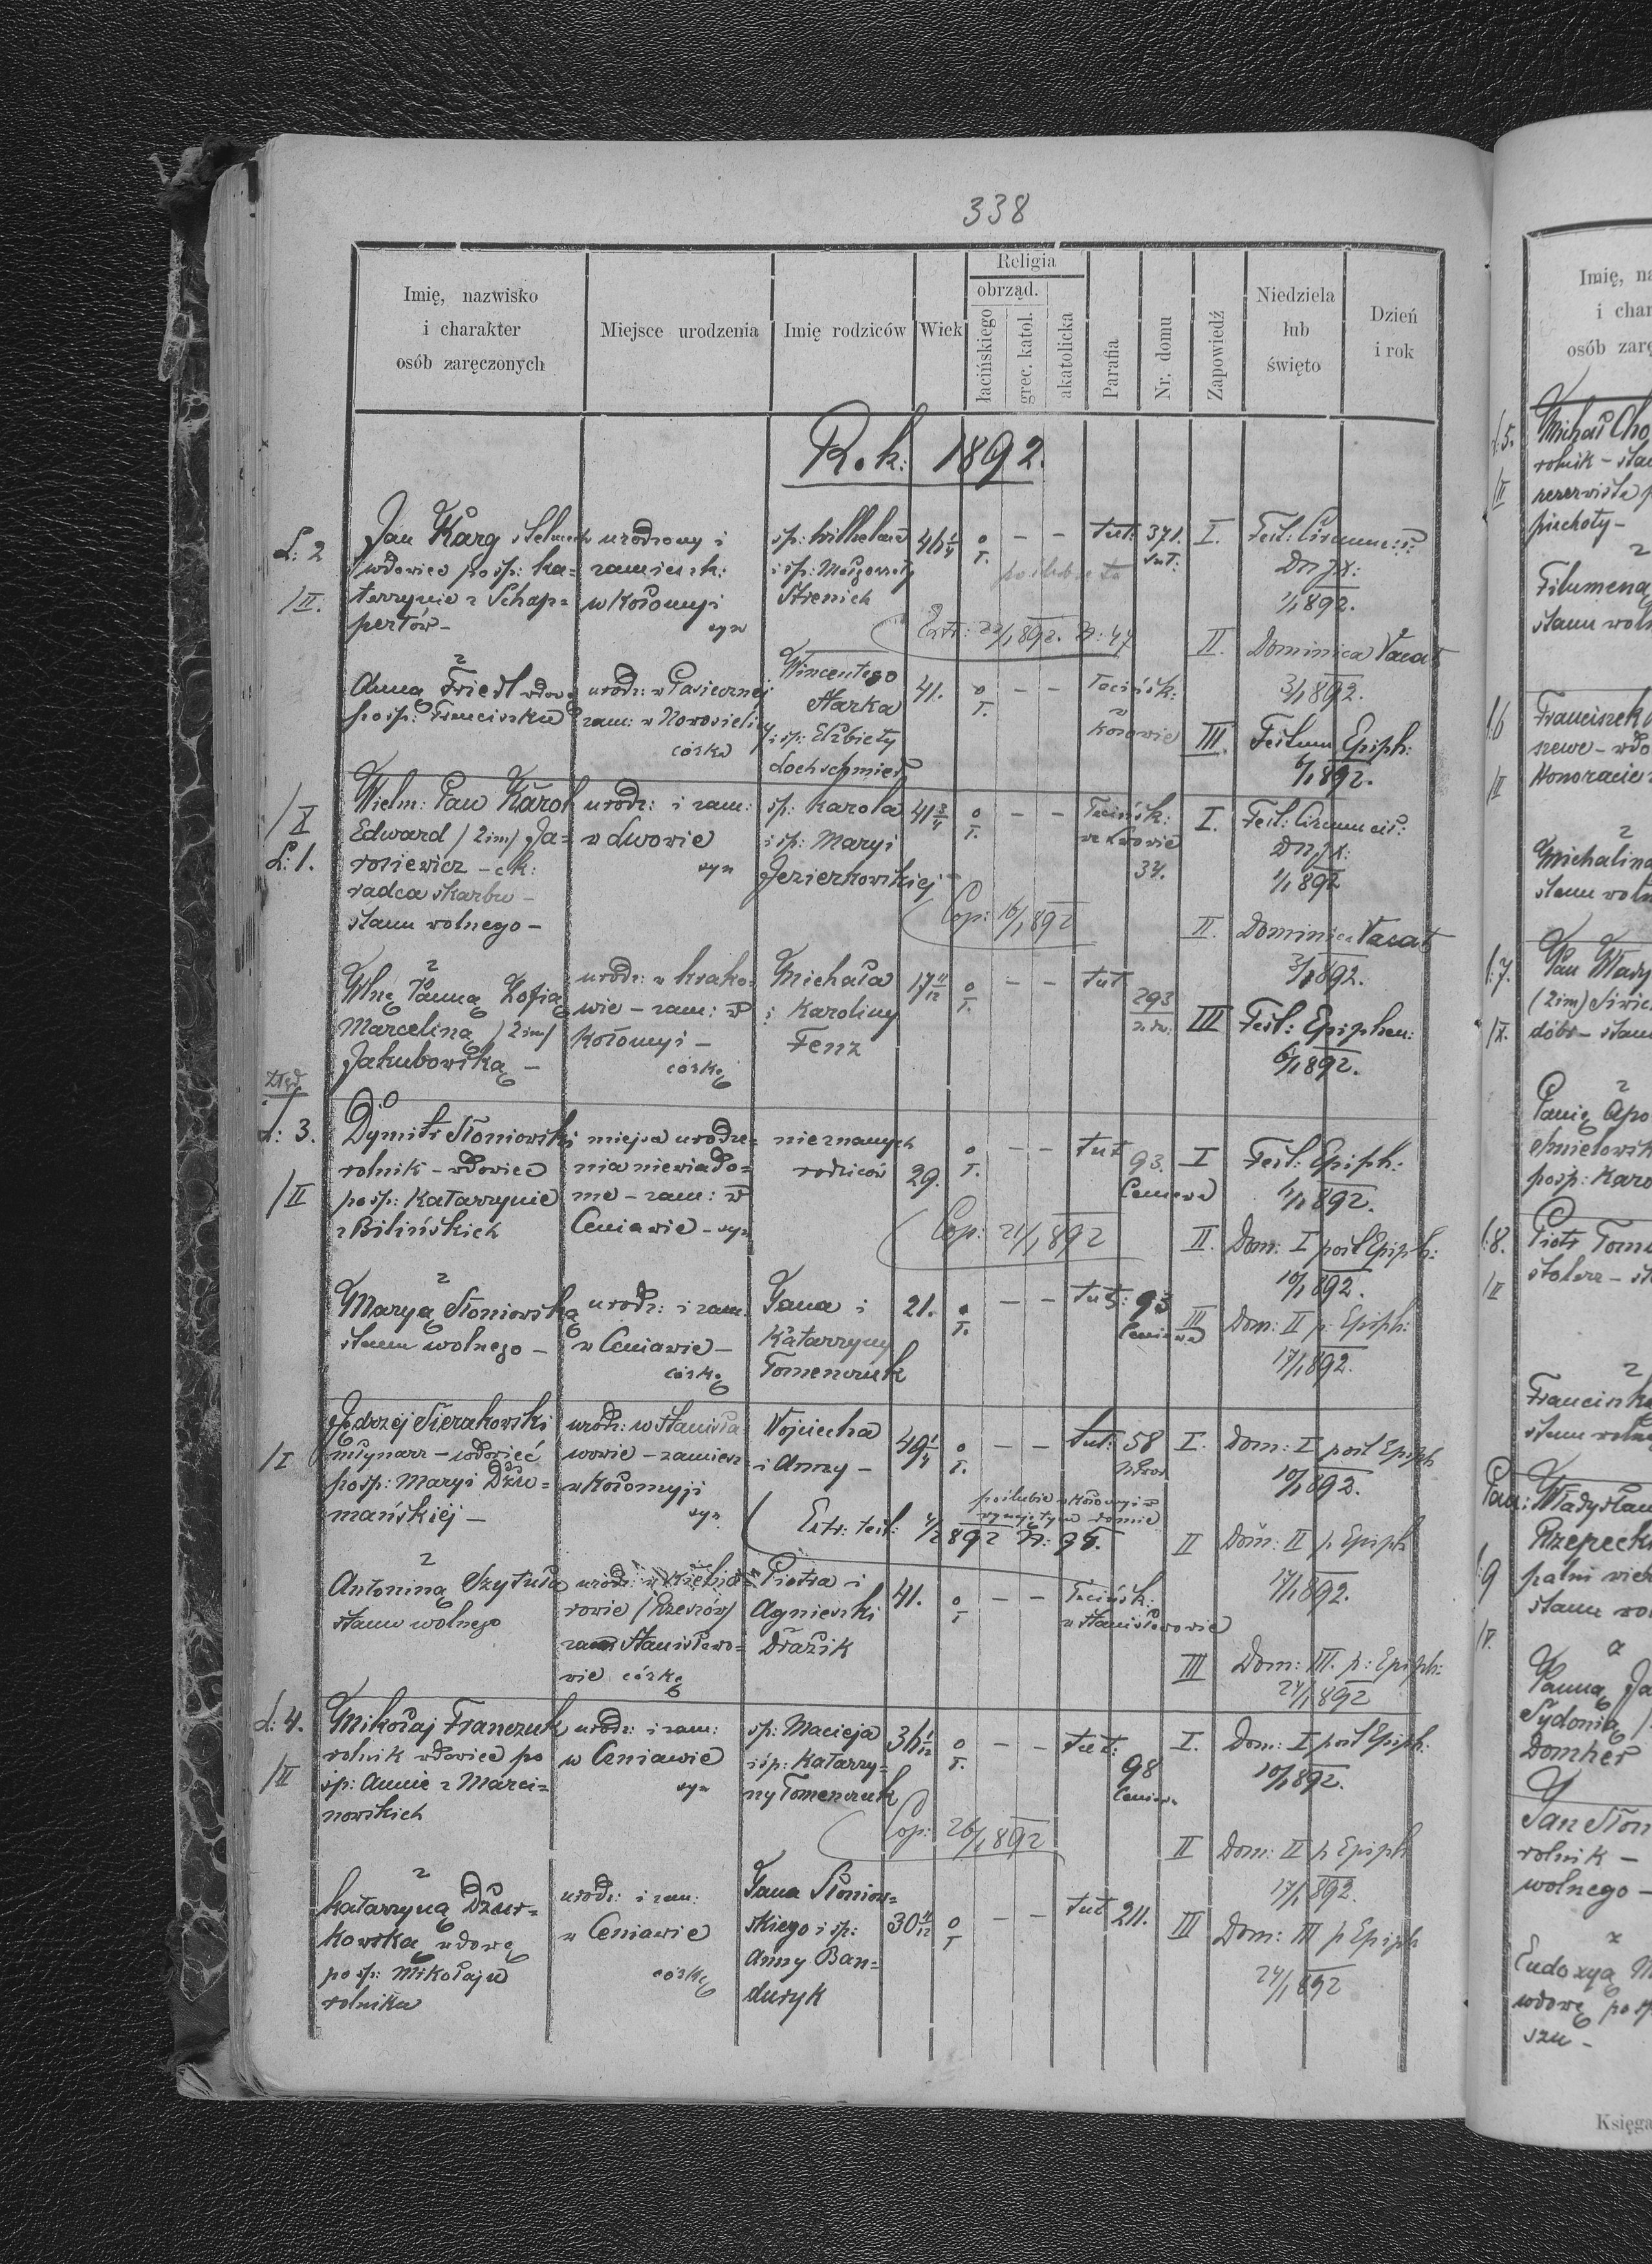 338
Imię, nazwisko
i charakter
osób zaręczonych
Miejsce urodzenia
Imię rodziców
Wiek
Religia
obrząd.
łacińskiego
grec. katol.
akatolicka
Parafia
Nr. domu
Zapowiedź
Niedziela
lub
święto
Dzień
i rok
R.k: 1892.
L: 2
/II.
Jan Karg
wdowiec po śp: Ka=
tarzynie z Schap=
pertów -
urodzony i
zamieszk:
w Kołomyi
syn
śp: Wilhelma
i śp: Małgorzaty
46 1/4
o
ł.
- -
tut:
371.
I.
Fest: Circumcis:
Dni JX:
1/1 892.
Extr: 22/1 892. N: 44
II. Dominica Vacat
3/1 892.
z
Anną Friedl wdową
po śp: Franciszku
urodz: w Pasiecznej
zam: w Nowosielicy
córką
Wincentego
Starka
i śp: Elżbiety
41.
o
ł.
- -
łacińsk:
w
Kosowie
III. Festum Epiph:
6/1 892.
/X
L: 1.
Wielm: Pan Karol
Edward /2im/ Ja=
rosiewicz - ck:
radca skarbu -
stanu wolnego -
urodz: i zam:
w Lwowie
syn
śp: Karola
i śp: Maryi
Jezierkowskiej
41 3/4
o
ł.
- -
łacińsk:
we Lwowie
34.
I.
Fest: Circumcis:
Dni JX:
1/1 892
Cop: 16/1 892
II. Dominica Vacat
3/1 892.
z
Wlną Panną Zofią
Marceliną /2im/
Jakubowską -
urodz: w Krako=
wie - zam: w
Kołomyi -
córką
Michała
i Karoliny
Fenz
17 11/12
o
ł.
- -
tut
293
III Fest: Epiphan:
6/1 892.
L: 3.
/II
Dymitr Słoniowski
rolnik - wdowiec
po śp: Katarzynie
z Bilińskich
miejsca urodze=
nia niewiado=
me - zam: w
Ceniawie - syn
nieznanych
rodziców
29.
o
ł.
- -
tut
93.
Ceniawa
I Fest: Epiph:
6/1 892.
Cop: 21/1 892
II. Dom: I post Epiph:
10/1 892.
z
Maryą Słoniowską
stanu wolnego -
urodz: i zam:
w Ceniawie -
córką
Jana i
Katarzyny
Tomenczuk
21.
o
ł.
- -
tut:
93
Ceniawa
III Dom: II p: Epiph:
17/1 892.
/I
Jędrzej Sierakowski
młynarz - wdowiec
po śp: Maryi Dżu=
mańskiej -
urodz: w Stanisła
wowie - zamiesz
w Kołomyji
syn
Wojciecha
i Anny -
49 1/4
o
ł.
- -
tut: 58
I. Dom: I post Epiph
10/1 892.
Extr: test: 4/2 892 N: 95.
II Dom: II p: Epiph
17/1 892.
z
Antoniną Szytuła
stanu wolnego
rowie (Rzeszów)
zam Stanisławo=
wie córką
Piotra i
Agnieszki
Drażik
41.
o
ł
- -
łacińsk:
w Stanisławowie
III Dom: III. p: Epiph:
24/1 892
L: 4.
/II
Mikołaj Franczuk
rolnik wdowiec po
śp: Annie z Marci=
nowskich
urodz: i zam:
w Ceniawie
syn
śp: Macieja
i śp: Katarzy=
ny Tomenczuk
36 1/12
o
ł.
- -
tut:
98
Ceniawa
I. Dom: I post Epiph:
10/1 892.
Cop: 26/1 892
II Dom: II p Epiph
17/1 892.
z
Katarzyną Dżur=
kowską wdową
po śp: Mikołaju
rolniku
urodz: i zam:
w Ceniawie
córką
Jana Słoniow=
skiego i śp:
Anny Ban=
duryk
30 11/12
o
ł
- -
tut 211.
III Dom: III p Epiph
24/1 892
Imię, na
i char
osób zarę
5.
/II
Michał Cho
rolnik - sta
rezerwista p
piechoty -
z
Filumeną
stanu woln
6
/II
Franciszek
Honoracie z
z
Michaliną
stanu woln
7.
/X.
Pan Włady
(2im) Siwic
dóbr - stanu
z
Panią Apo
po śp: Karo
8.
/II
Piotr Toma
stolarz - st
z
Francisk
stanu woln
9
Pan: Władysław
Rzepeck
stanu wo
z
Panną Ja
Sydonią /
Domhes
Jan Słon
rolnik -
wolnego -
z
Eudoxyą M
wdową po śp
szu -
Księga